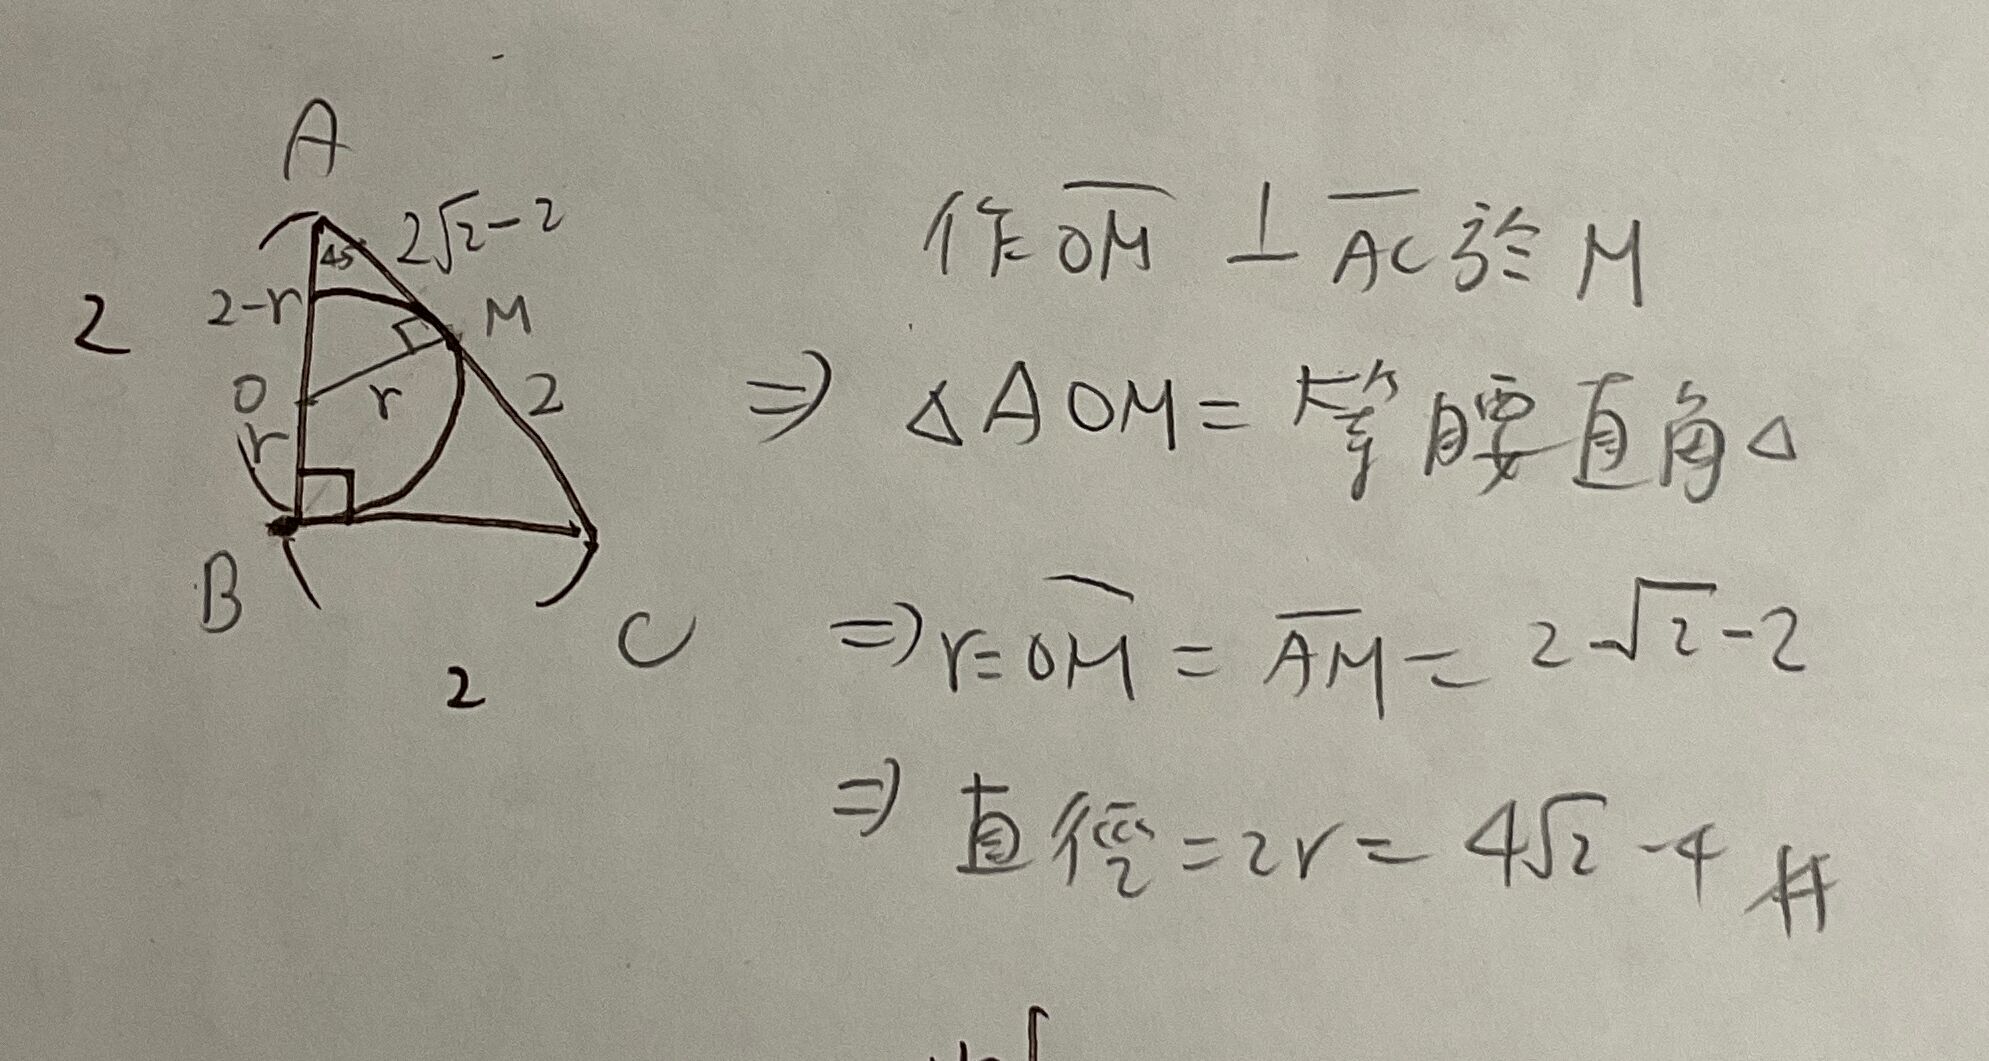 A
2√2-2
45
2
2-r
M
O
r
2
r
B
C
2
作OM ⊥ AC於 M
⇒ △AOM = 等腰直角△
⇒ r=OM = AM = 2√2-2
⇒ 直徑=2r= 4√2-4 #